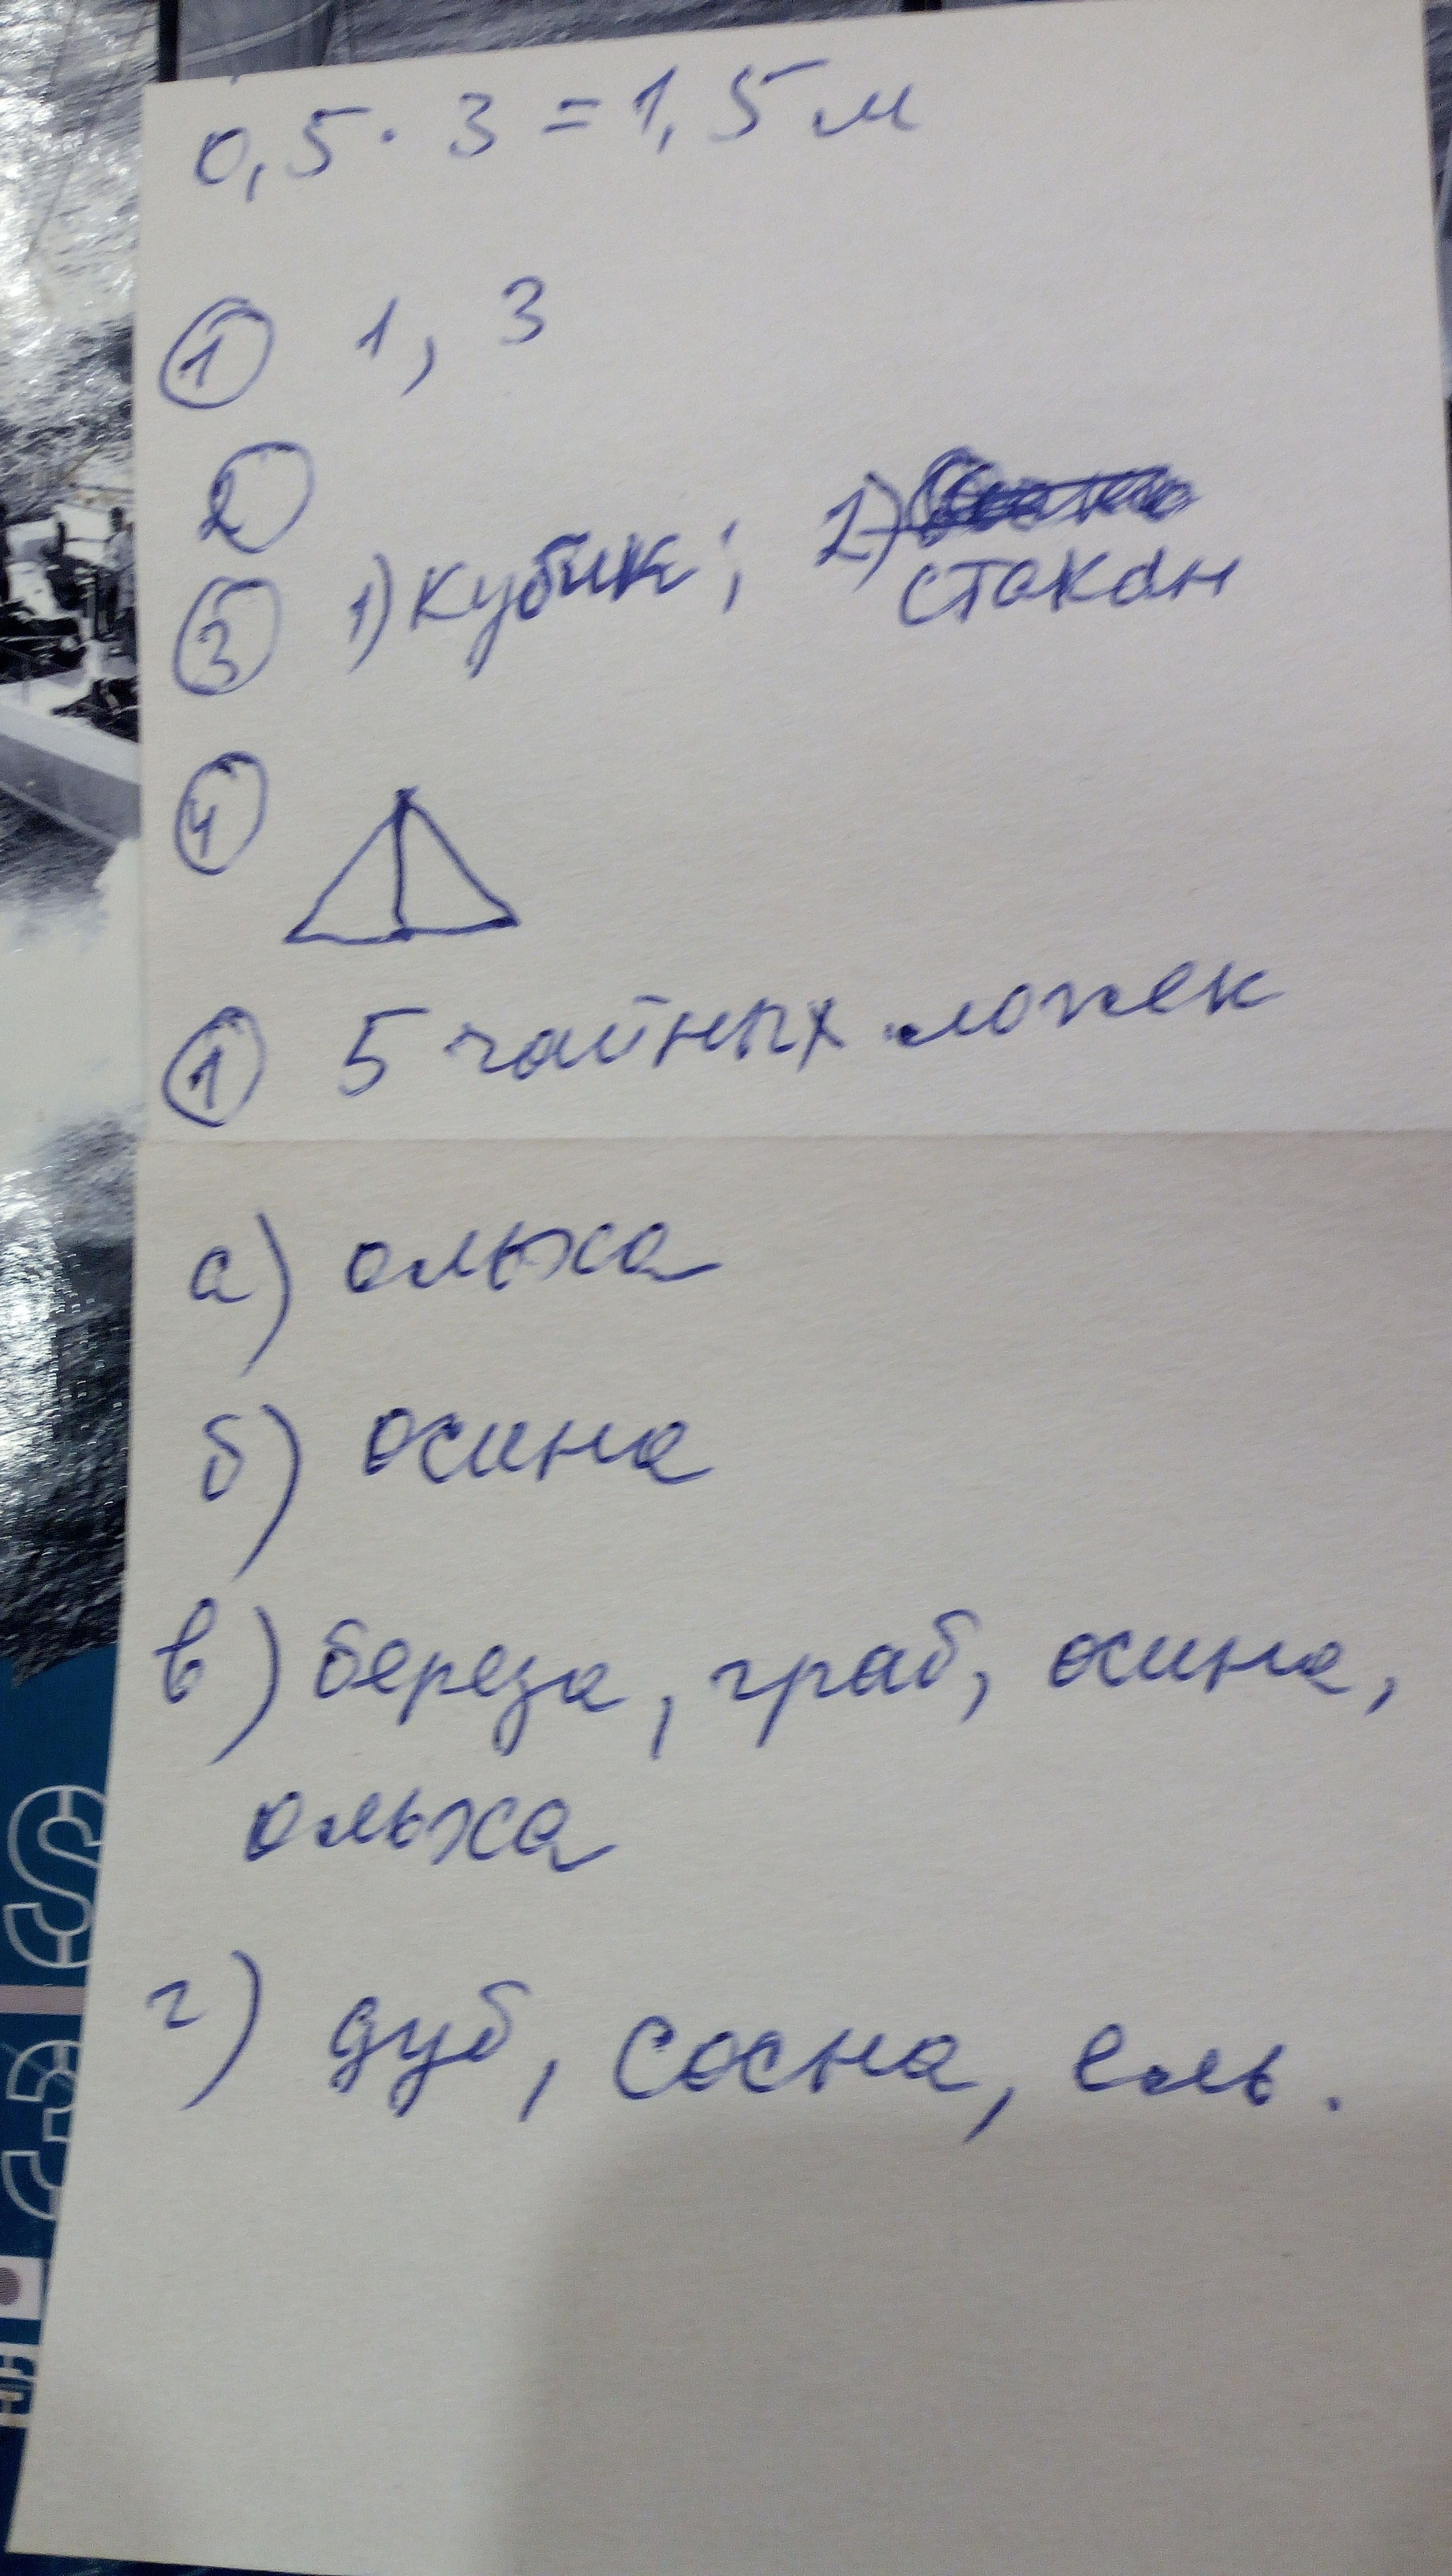 0,5 · 3 = 1,5 м
① 1, 3
②
③ 1) кубик; 2) стакан
④
① 5 чайных ложек
а) ольха
б) осина
в) береза, граб, осина,
ольха
г) дуб, сосна, ель.
S
3